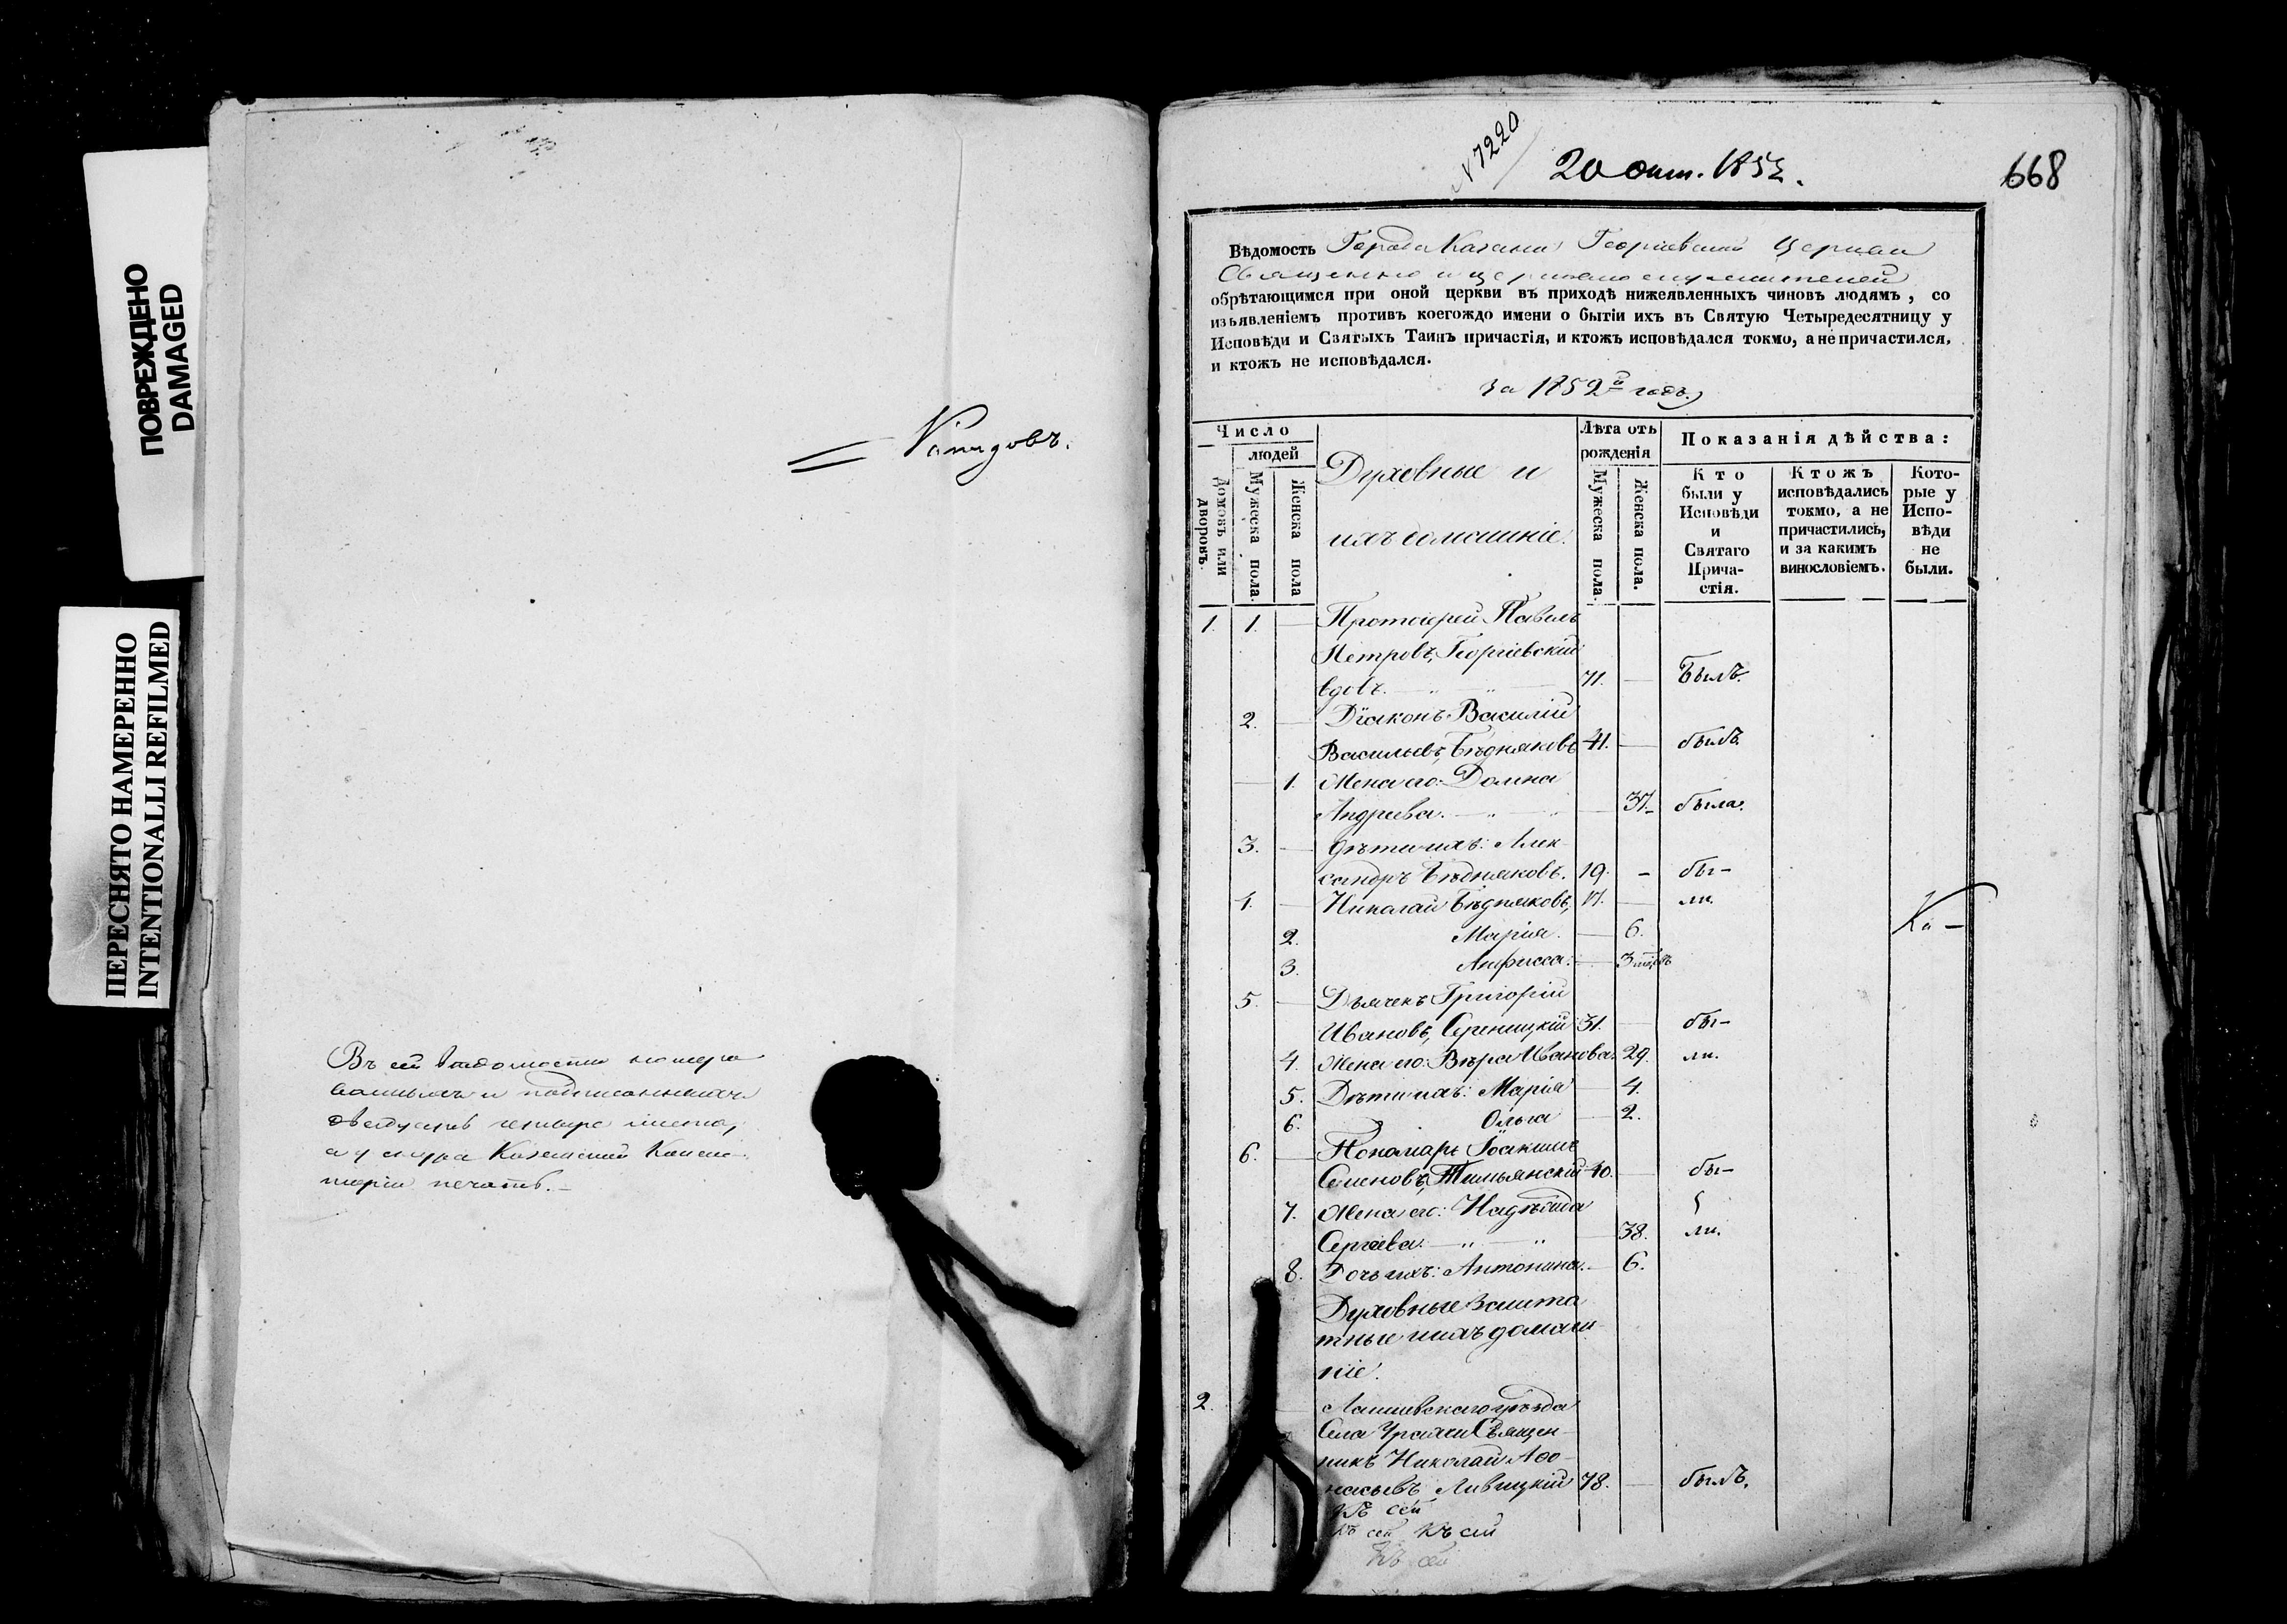 ПОВРЕЖДЕНО
DAMAGED
ПЕРЕСНЯТО НАМЕРЕННО
INTENTIONALLI REFILMED
Въ сей вѣдомости нумеро
ванныхъ и подписанныхъ
четыре листа,
а у снура Казанской Конси-
торіи печать.
N 7220
20 Окт. 1852.
668
Вѣдомость Города Казани Георгіевской Церкви
Священно и церковнослужителей
обрѣтающимся при оной церкви въ приходѣ нижеявленныхъ чиновъ людямъ, со
изъявленіемъ противъ коегождо имени о бытіи ихъ въ Святую Четыредесятницу у
Исповѣди и Святыхъ Таинъ причастія, и ктожъ исповѣдался токмо, а не причастился,
и ктожъ не исповѣдался.
за 1852й годъ.
Число
людей
Домовъ или дворовъ.
Мужеска пола.
Женска пола
Духовные и
ихъ домашніе.
Лѣта отъ
рожденія
Мужеска пола.
Женска пола.
Показанія дѣйства:
Кто
были у
Исповѣди
и
Святаго
Прича-
стія.
Ктожъ
исповѣдались
токмо, а не
причастились,
и за какимъ
винословіемъ.
Кото-
рые у
Испо-
вѣди
не
были.
1. 1. Протоіерей Павелъ
Петровъ, Георгіевскій
вдовъ. 71. Былъ.
2. Діаконъ Василій
Васильевъ, Бѣдняковъ 41. былъ.
1. Жена его: Домна
Андреева. 37. была.
3. дѣти ихъ: Алек-
сандръ Бѣдняковъ. 19. - бы-
4. Николай Бѣдняковъ, 17. ли.
2. Марія. 6. Ка-
3. Анфисса. 3
5. Дьячекъ Григорій
Ивановъ, 31. бы-
4. Жена его: Вѣра Иванова. 29. ли.
5. Дѣти ихъ: Марія 4.
6. Ольга 2.
6. Пономарь Іоакимъ
Семеновъ, 40. бы-
7. Жена его: Надежда
Сергѣева. 38. ли.
8. Дочь ихъ: Антонина. 6.
Духовные Зашта
тные и ихъ домаш-
ніе.
2. Лаишевскаго уѣзда
Села Урахчи Священ-
никъ Николай Аѳо-
насьевъ Ливицкій 78. былъ.
Къ сей
Къ сей Къ сей
Къ сей